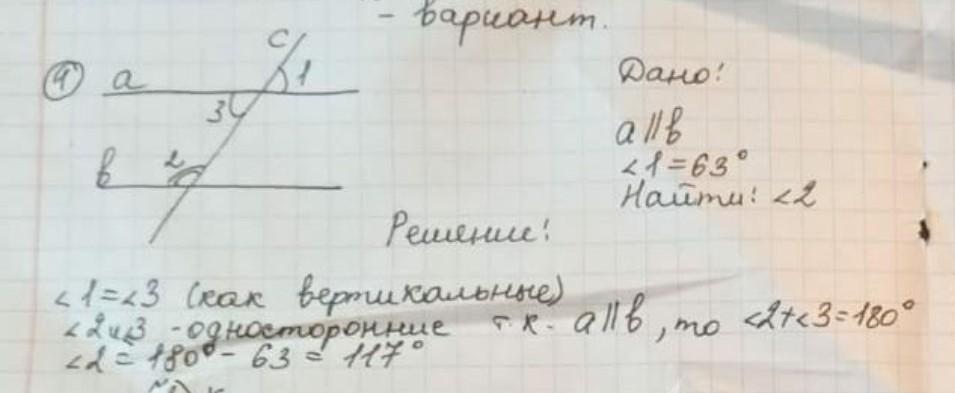 - вариант.
④ a c 1
3
b 2
Дано:
a || b
∠1 = 63°
Найти: ∠2
Решение:
∠1 = ∠3 (как вертикальные)
∠2 и ∠3 - односторонние т.к. a || b, то ∠2 + ∠3 = 180°
∠2 = 180° - 63 = 117°